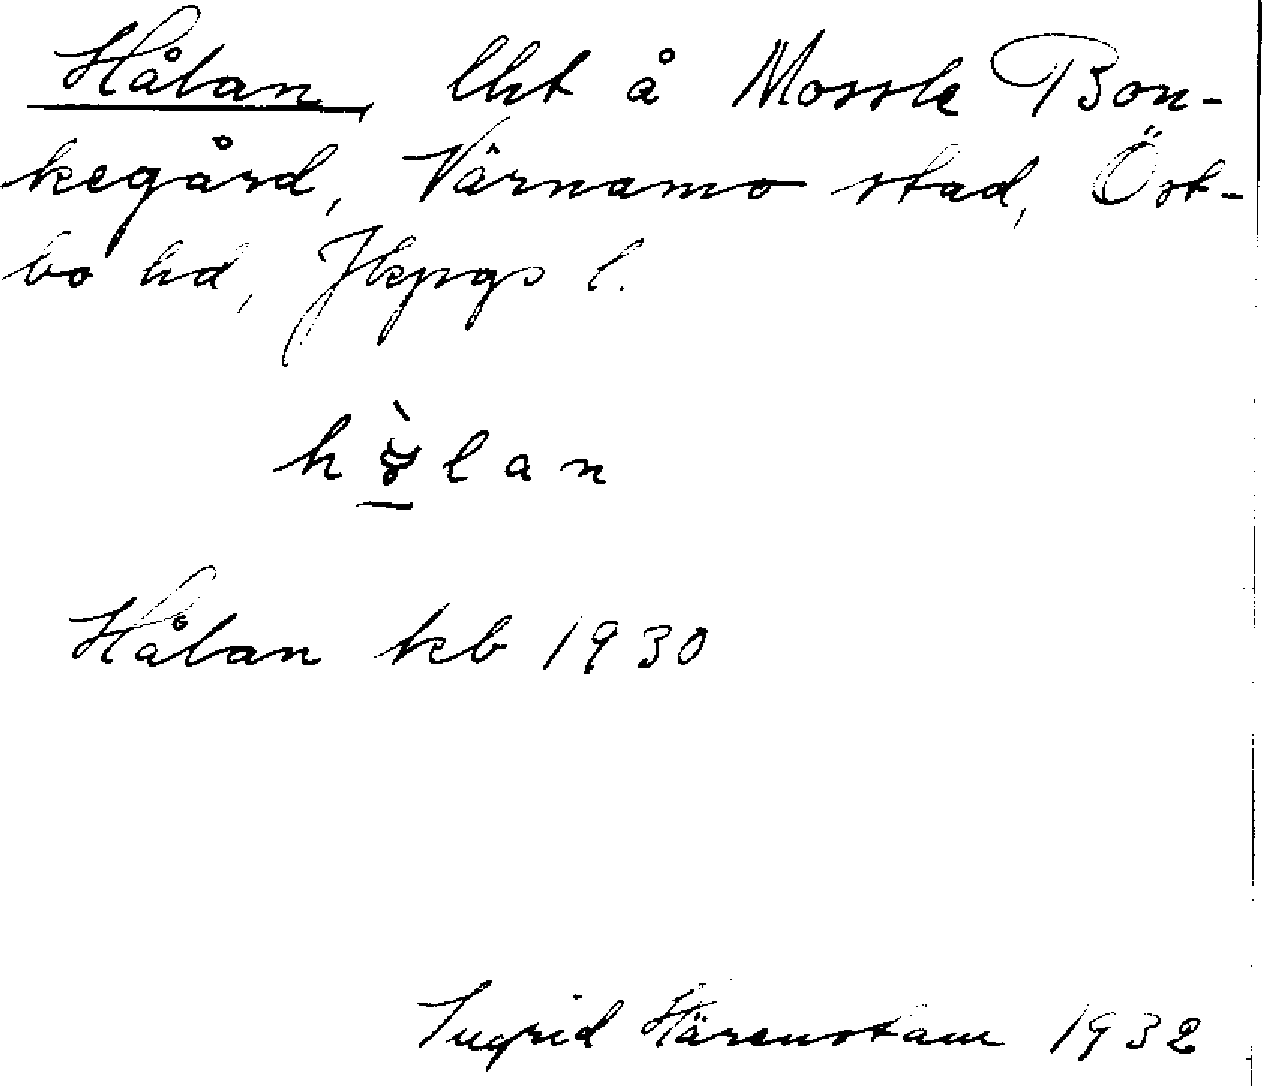 Hålan, lht å Mossle Bon-
kegård, Värnamo stad, Öst-
bo hd, Jkpgs l.
lan
Hålan kb 1930
Ingrid Härenstam 1932